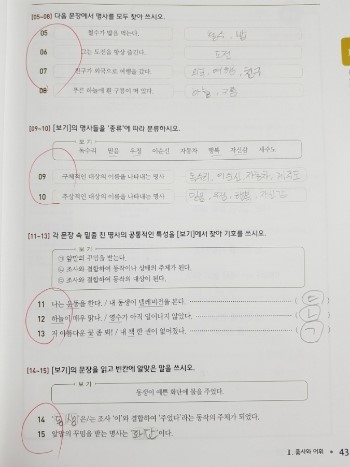 [05~08] 다음 문장에서 명사를 모두 찾아 쓰시오.
05 철수가 밥을 먹는다. 철수, 밥
06 그는 도전을 항상 즐긴다. 도전
07 친구가 외국으로 여행을 갔다. 외국, 여행, 친구
08 푸른 하늘에 흰 구름이 떠 있다. 하늘, 구름
[09~10] [보기]의 명사들을 '종류'에 따라 분류하시오.
보기
독수리 믿음 우정 이순신 자동차 행복 자신감 제주도
09 구체적인 대상의 이름을 나타내는 명사 독수리, 이순신, 자동차, 제주도
10 추상적인 대상의 이름을 나타내는 명사 믿음, 우정, 행복, 자신감
[11~13] 각 문장 속 밑줄 친 명사의 공통적인 특성을 [보기]에서 찾아 기호를 쓰시오.
보기
㉠ 앞말의 꾸밈을 받는다.
㉡ 조사와 결합하여 동작이나 상태의 주체가 된다.
㉢ 조사와 결합하여 동작의 대상이 된다.
11 나는 운동을 한다. / 내 동생이 텔레비전을 본다. ( ㄷ )
12 하늘이 매우 맑다. / 영수가 아직 일어나지 않았다. ( ㄴ )
13 저 아름다운 꽃 좀 봐! / 내 책 한 권이 없어졌다. ( ㄱ )
[14~15] [보기]의 문장을 읽고 빈칸에 알맞은 말을 쓰시오.
보기
동생이 예쁜 화단에 물을 주었다.
14 '동생'은/는 조사 '이'와 결합하여 '주었다'라는 동작의 주체가 되었다.
15 앞말의 꾸밈을 받는 명사는 '화단'이다.
1. 품사와 어휘 43